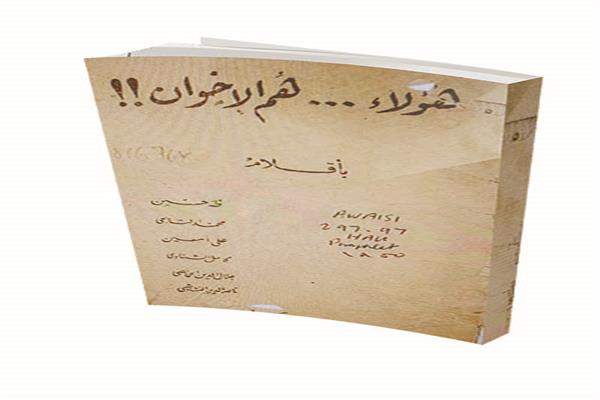 هؤلاء ... هُم الإخوان !!
بأقلام
طه حسين
محمد التابعي
علي أمين
كامل الشناوي
جلال الدين الحمامصي
ناصر الدين النشاشيبي
AWAISI
297.97
HAU
Pamphlet